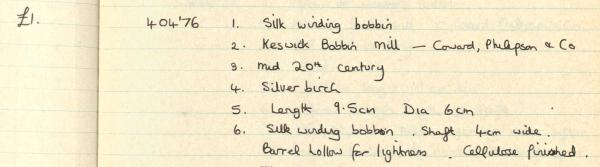 £1. 404'76 1. Silk winding bobbin
2. Keswick Bobbin Mill — Coward, Philipson & Co
3. mid 20th century
4. Silver birch
5. Length 9.5cm Dia 6cm
6. Silk winding bobbin. Shaft 4cm wide.
Barrel hollow for lightness. Cellulose finished.